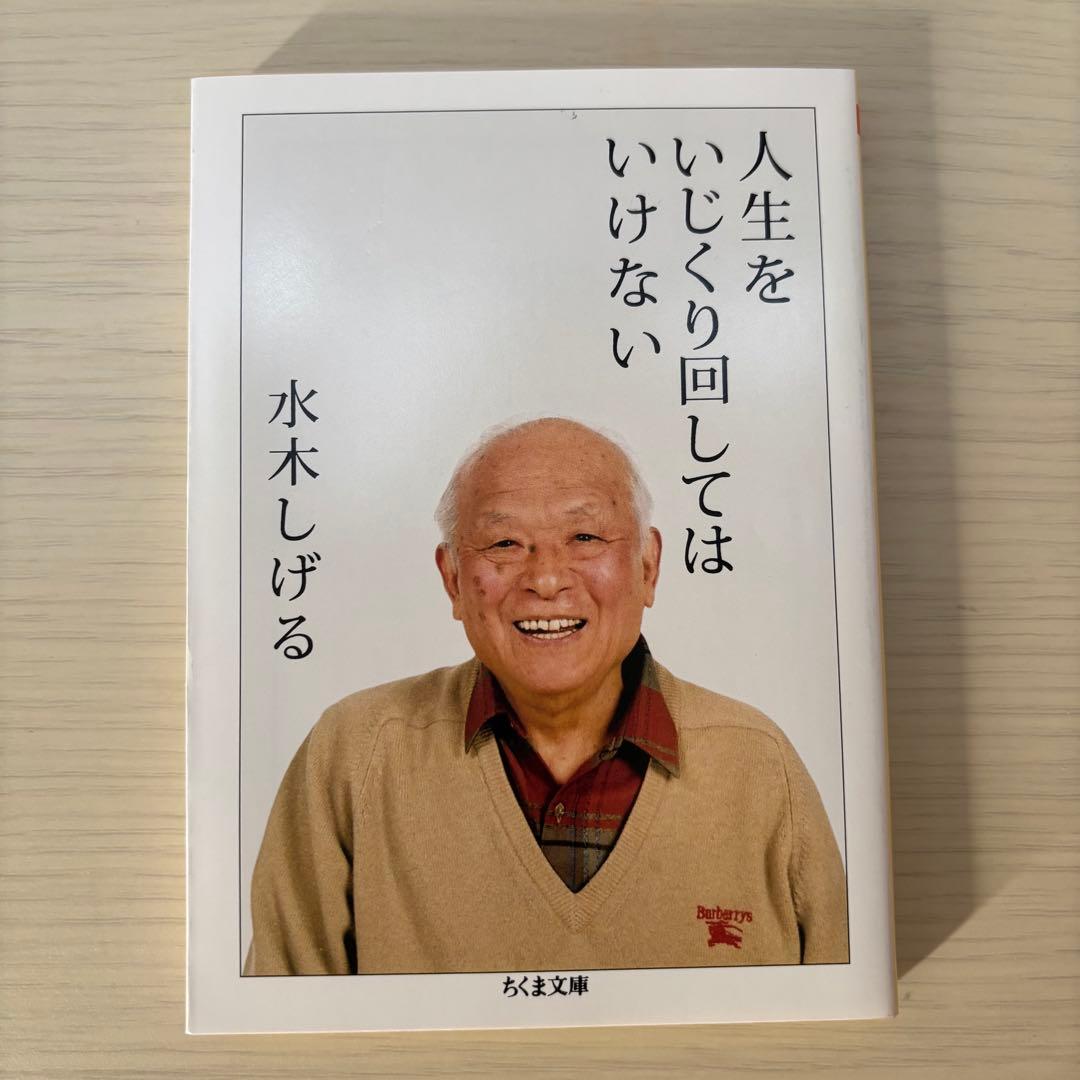 人生を
いじくり回しては
いけない
水木しげる
Burberrys
ちくま文庫